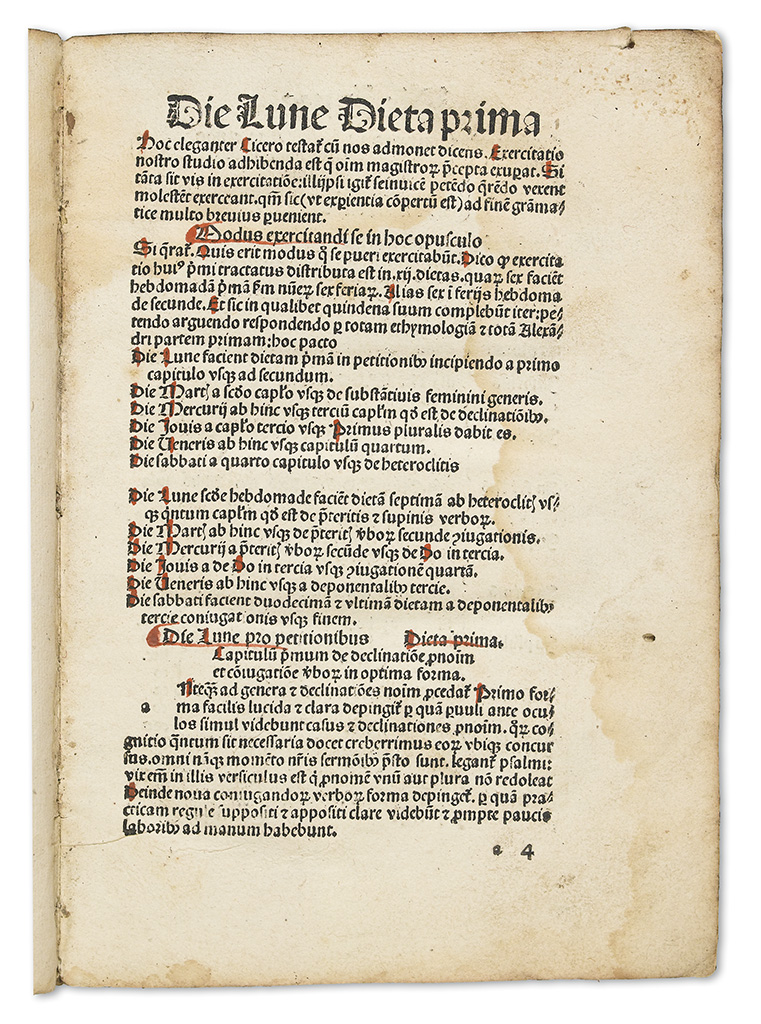 Die Lune Dieta prima
Hoc eleganter Cicero testat᷑ cū nos admonet dicens. Exercitatio
nostro studio adhibenda est q̄ oīm magistroꝝ p̄cepta exuꝑat. Si
tāta sit vis in exercitatiōe: illi ip̄si igit᷑ seinuicē petēdo q̄rēdo vexent
molestēt exerceant. qm̄ sic (vt exꝑientia cōpertū est) ad finē grāma⸗
tice multo breuius ꝑuenient.
Modus exercitandi se in hoc opusculo
Si q̄rat᷑. Quis erit modus q̄ se pueri exercitabūt. Dico ꝙ exercita
tio huiꝰ p̄mi tractatus distributa est in .xij. dietas. quaꝝ sex faciēt
hebdomadā p̄mā ẜm nūeꝝ sex feriaꝝ. Alias sex ī ferijs hebdoma
de secunde. Et sic in qualibet quindena suum complebūt iter: pe⸗
tendo arguendo respondendo ꝑ totam ethymologiā ⁊ totā Alexā⸗
dri partem primam: hoc pacto
Die Lune facient dietam p̄mā in petitionibꝫ incipiendo a primo
capitulo vsqꝫ ad secundum.
Die Martꝭ a scḋo capło vsqꝫ de substātiuis feminini generis.
Die Mercurij ab hinc vsqꝫ terciū capłm qḋ est de declinatiōibꝫ.
Die Jouis a capło tercio vsqꝫ Primus pluralis dabit es.
Die Ueneris ab hinc vsqꝫ capitulū quartum.
Die sabbati a quarto capitulo vsqꝫ de heteroclitis
Die Lune scḋe hebdomade faciēt dietā septimā ab heteroclitꝭ vs⸗
qꝫ q̄ntum capłm qḋ est de p̄teritis ⁊ supinis verboꝝ.
Die Martꝭ ab hinc vsqꝫ de p̄teritꝭ v̄boꝝ secunde ꝯiugationis.
Die Mercurij a p̄teritꝭ v̄boꝝ secūde vsqꝫ de Do in tercia.
Die Jouis a de Do in tercia vsqꝫ ꝯiugationē quartā.
Die Ueneris ab hinc vsqꝫ a deponentalibꝫ tercie.
Die sabbati facient duodecimā ⁊ vltimā dietam a deponentalibꝫ
tercie coniugationis vsqꝫ finem.
Die Lune pro petitionibus Dieta prima.
Capitulū p̄mum de declinatiōe ꝓnoīm
et cōiugatiōe v̄boꝝ in optima forma.
Nteqꝫ̄ ad genera ⁊ declinatiōes noīm ꝓcedat᷑ Primo for⸗
a ma facilis lucida ⁊ clara depingit᷑ ꝑ quā ꝑuuli ante ocu⸗
los simul videbunt casus ⁊ declinationes ꝓnoīm. qꝝ co⸗
gnitio q̄ntum sit necessaria docet creberrimus eoꝝ vbiqꝫ concur
sus. omni nāqꝫ momēto nr̄is sermōibꝫ p̄sto sunt. legant᷑ psalmi:
vix em̄ in illis versiculus est q̇ ꝓnomē vnū aut plura nō redoleat
Deinde noua coniugandoꝝ verboꝝ forma depinget᷑. ꝑ quā pra⸗
cticam regule suppositi ⁊ appositi clare videbūt ⁊ ꝓmpte paucis
laboribꝫ ad manum habebunt.
a 4